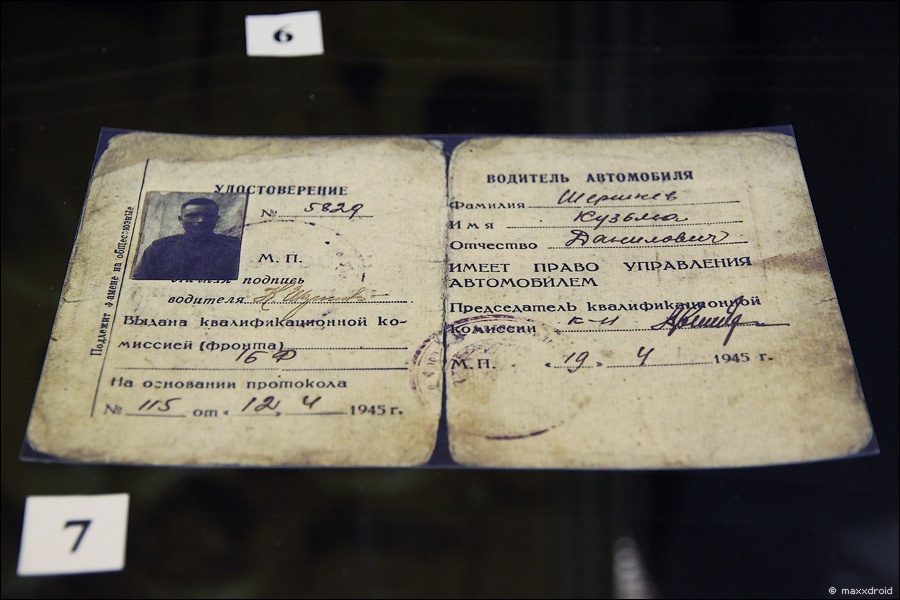 6
УДОСТОВЕРЕНИЕ
№ 5829
М. П.
подпись
водителя
Выдана квалификационной ко-
миссией (фронта)
1БФ
На основании протокола
№ 115 от « 12 » 4 1945 г.
Подлежит на общесоюзные
ВОДИТЕЛЬ АВТОМОБИЛЯ
Фамилия
Имя Кузьма
Отчество Данилович
ИМЕЕТ ПРАВО УПРАВЛЕНИЯ
АВТОМОБИЛЕМ
Председатель квалификационной
комиссии к-н
М. П. « 19 » 4 1945 г.
7
© maxxdroid